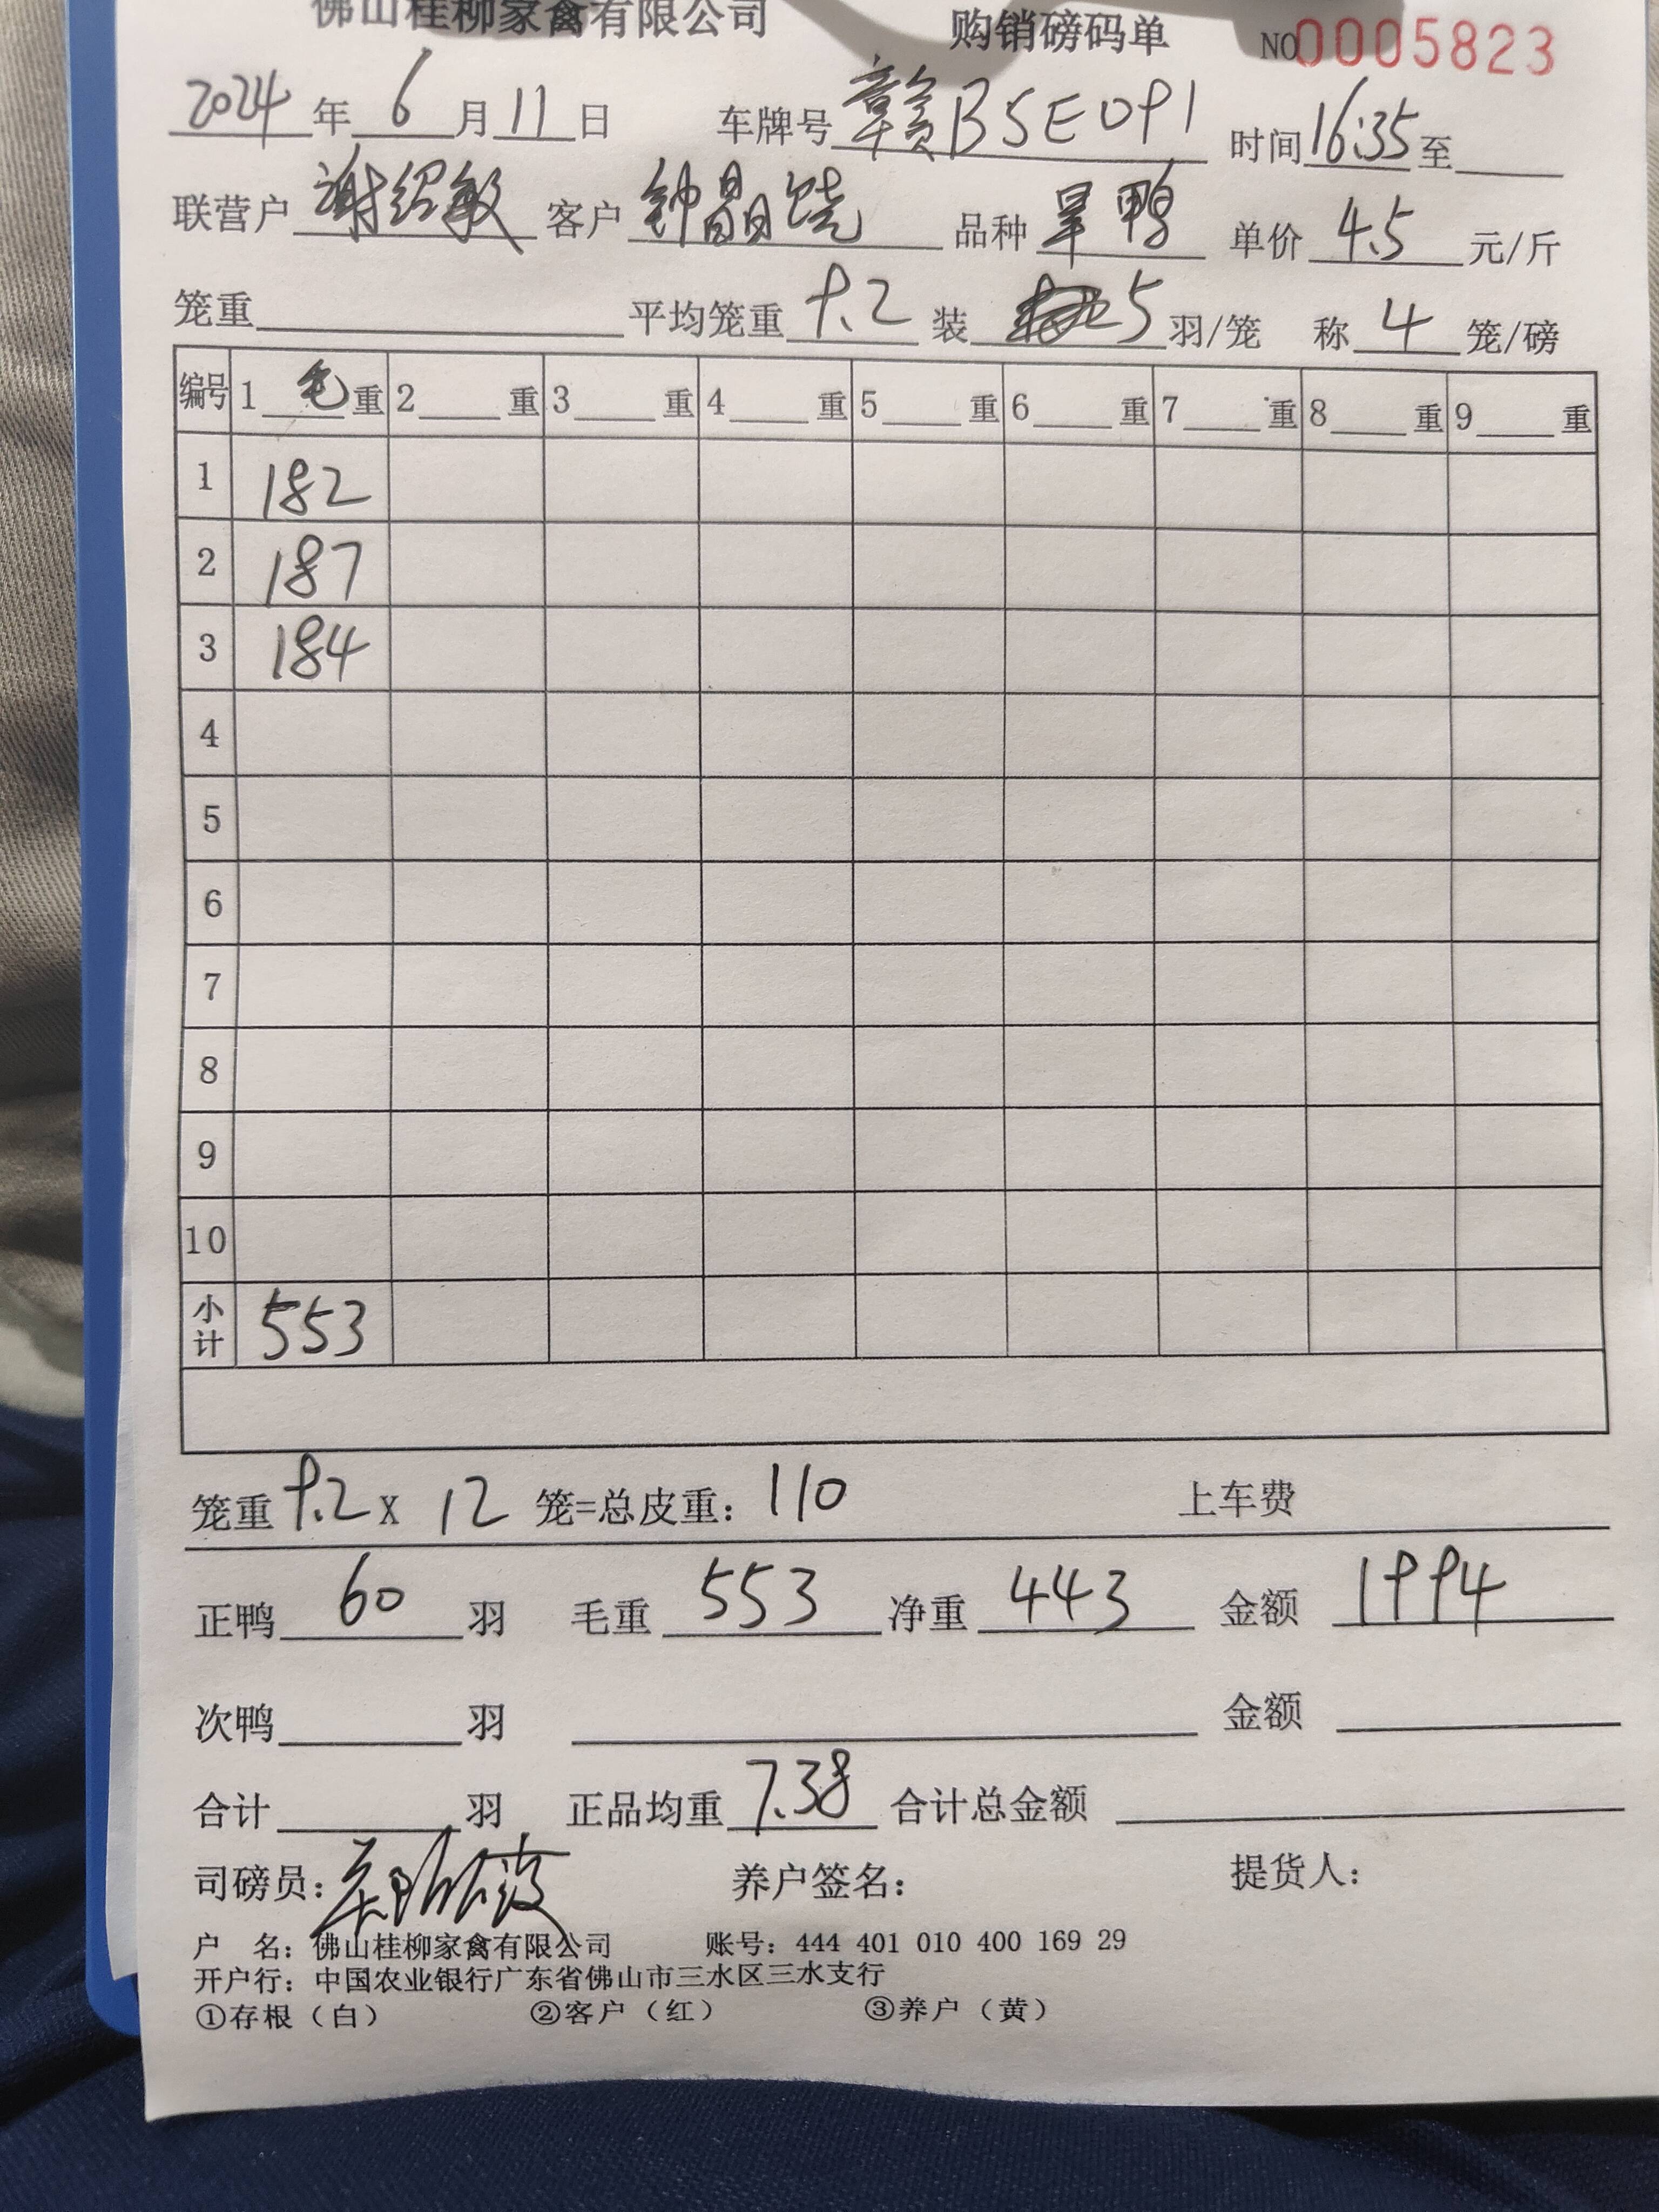 佛山桂柳家禽有限公司 购销磅码单 NO 0005823
2024 年 6 月 11 日 车牌号 赣B5E091 时间 16:35 至
联营户 谢绍敏 客户 钟晶饶 品种 旱鸭 单价 4.5 元/斤
笼重 平均笼重 9.2 装 5 羽/笼 称 4 笼/磅
编号 1 毛 重 2 重 3 重 4 重 5 重 6 重 7 重 8 重 9 重
1 182
2 187
3 184
4
5
6
7
8
9
10
小计 553
笼重 9.2 X 12 笼=总皮重: 110 上车费
正鸭 60 羽 毛重 553 净重 443 金额 1994
次鸭 羽 金额
合计 羽 正品均重 7.38 合计总金额
司磅员: 养户签名: 提货人:
户 名: 佛山桂柳家禽有限公司 账号: 444 401 010 400 169 29
开户行: 中国农业银行广东省佛山市三水区三水支行
①存根（白） ②客户（红） ③养户（黄）